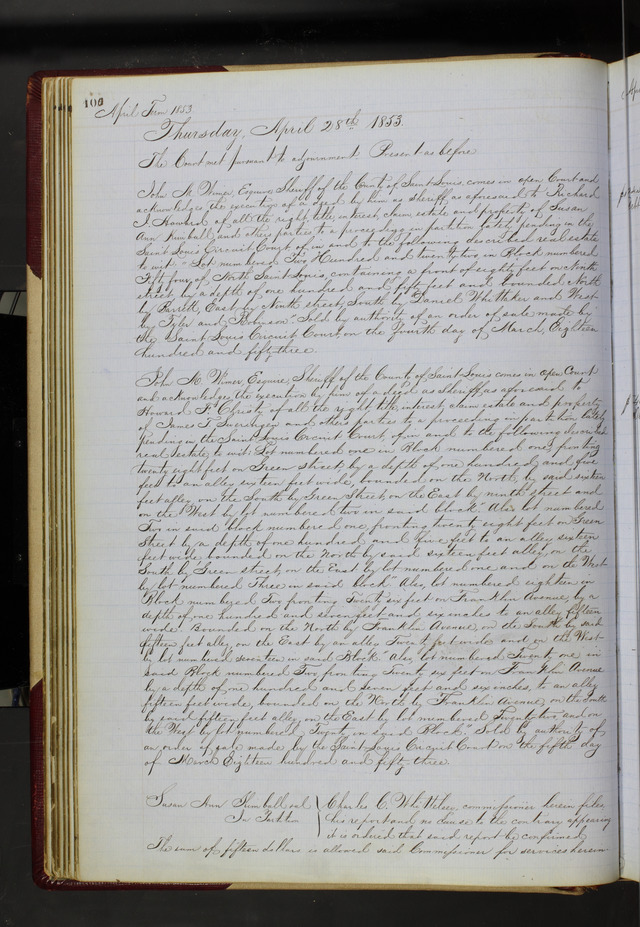 100
April Term 1853
Thursday, April 28th 1853.
The Court met pursuant to adjournment. Present as before
John M. Wimer, Esquire, Sheriff of the County of Saint Louis, comes in open Court and
acknowledges the execution of a deed by him as Sheriff, as aforesaid to Richard
J. Howard of all the right, title, interest, claim, estate and property of Susan
Ann Kimball and others parties to a proceeding in partition lately pending in the
Saint Louis Circuit Court, of, in and to the following described real estate
to wit: "Lot numbered Two Hundred and twenty two in Block numbered
Fifty four of North Saint Louis, containing a front of eighty feet on Ninth
street, by a depth of one hundred and fifty feet and bounded North
by Farrell, East by Ninth street, South by Daniel Whittaker and West
by Tyler and Robinson" Sold by authority of an order of sale made by
the Saint Louis Circuit Court, on the fourth day of March, Eighteen
hundred and fifty three.
John M. Wimer Esquire, Sheriff of the County of Saint Louis comes in open Court
and acknowledges the execution by him of a deed as Sheriff, as aforesaid to
Howard F. Christy of all the right, title, interest, claim estate and property
of James T. Swearingen and others parties to a proceeding in partition lately
pending in the Saint Louis Circuit Court, of, in and to the following described
real estate, to wit: "Lot numbered one in Block numbered one, fronting
twenty eight feet on Green street by a depth of one hundred and five
feet to an alley sixteen feet wide, bounded on the North, by said sixteen
feet alley, on the South by Green Street on the East by ninth street and
on the West by lot numbered two in said block" Also, lot numbered
Two in said block numbered one fronting twenty eight feet on Green
Street by a depth of one hundred and five feet to an alley sixteen
feet wide, bounded on the North by said sixteen feet alley, on the
South by Green street, on the East by lot numbered one and on the West
by lot numbered Three in said block" Also, lot numbered eighteen in
Block numbered Two fronting Twenty six feet on Franklin Avenue, by a
depth of one hundred and seven feet and six inches to an alley fifteen
wide. Bounded on the North by Franklin Avenue, on the South by said
fifteen feet alley, on the East by an alley Twenty feet wide and on the West
by lot numbered seventeen in said Block" Also, lot numbered Twenty one in
said Block numbered Two fronting Twenty six feet on Franklin Avenue
by a depth of one hundred and seven feet and six inches, to an alley
fifteen feet wide, bounded on the North by Franklin Avenue, on the South
by said fifteen feet alley, on the East by lot numbered Twenty two and on
the West by lot numbered Twenty in said Block" Sold by authority of
an order of sale made by the Saint Louis Circuit Court on the fifth day
of March Eighteen hundred and fifty three.
Susan Ann Kimball et al
In Partition
Charles C. Whittelsey, commissioner herein files
his report and no cause to the contrary appearing
it is ordered that said report be confirmed.
The sum of fifteen dollars is allowed said Commissioner for services herein.